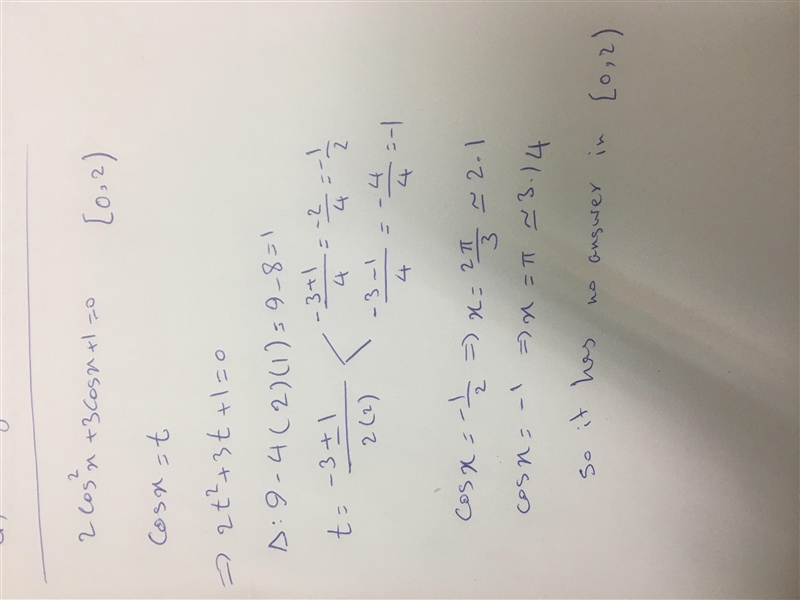 2cos²x+3cosx+1=0 [0,2)
cosx=t
⇒ 2t²+3t+1=0
Δ: 9-4(2)(1)=9-8=1
t = (-3±1)/2(2) < (-3+1)/4 = -2/4 = -1/2
(-3-1)/4 = -4/4 = -1
cosx = -1/2 ⇒ x = 2π/3 ≃ 2.1
cosx = -1 ⇒ x = π ≃ 3.14
so it has no answer in [0,2)